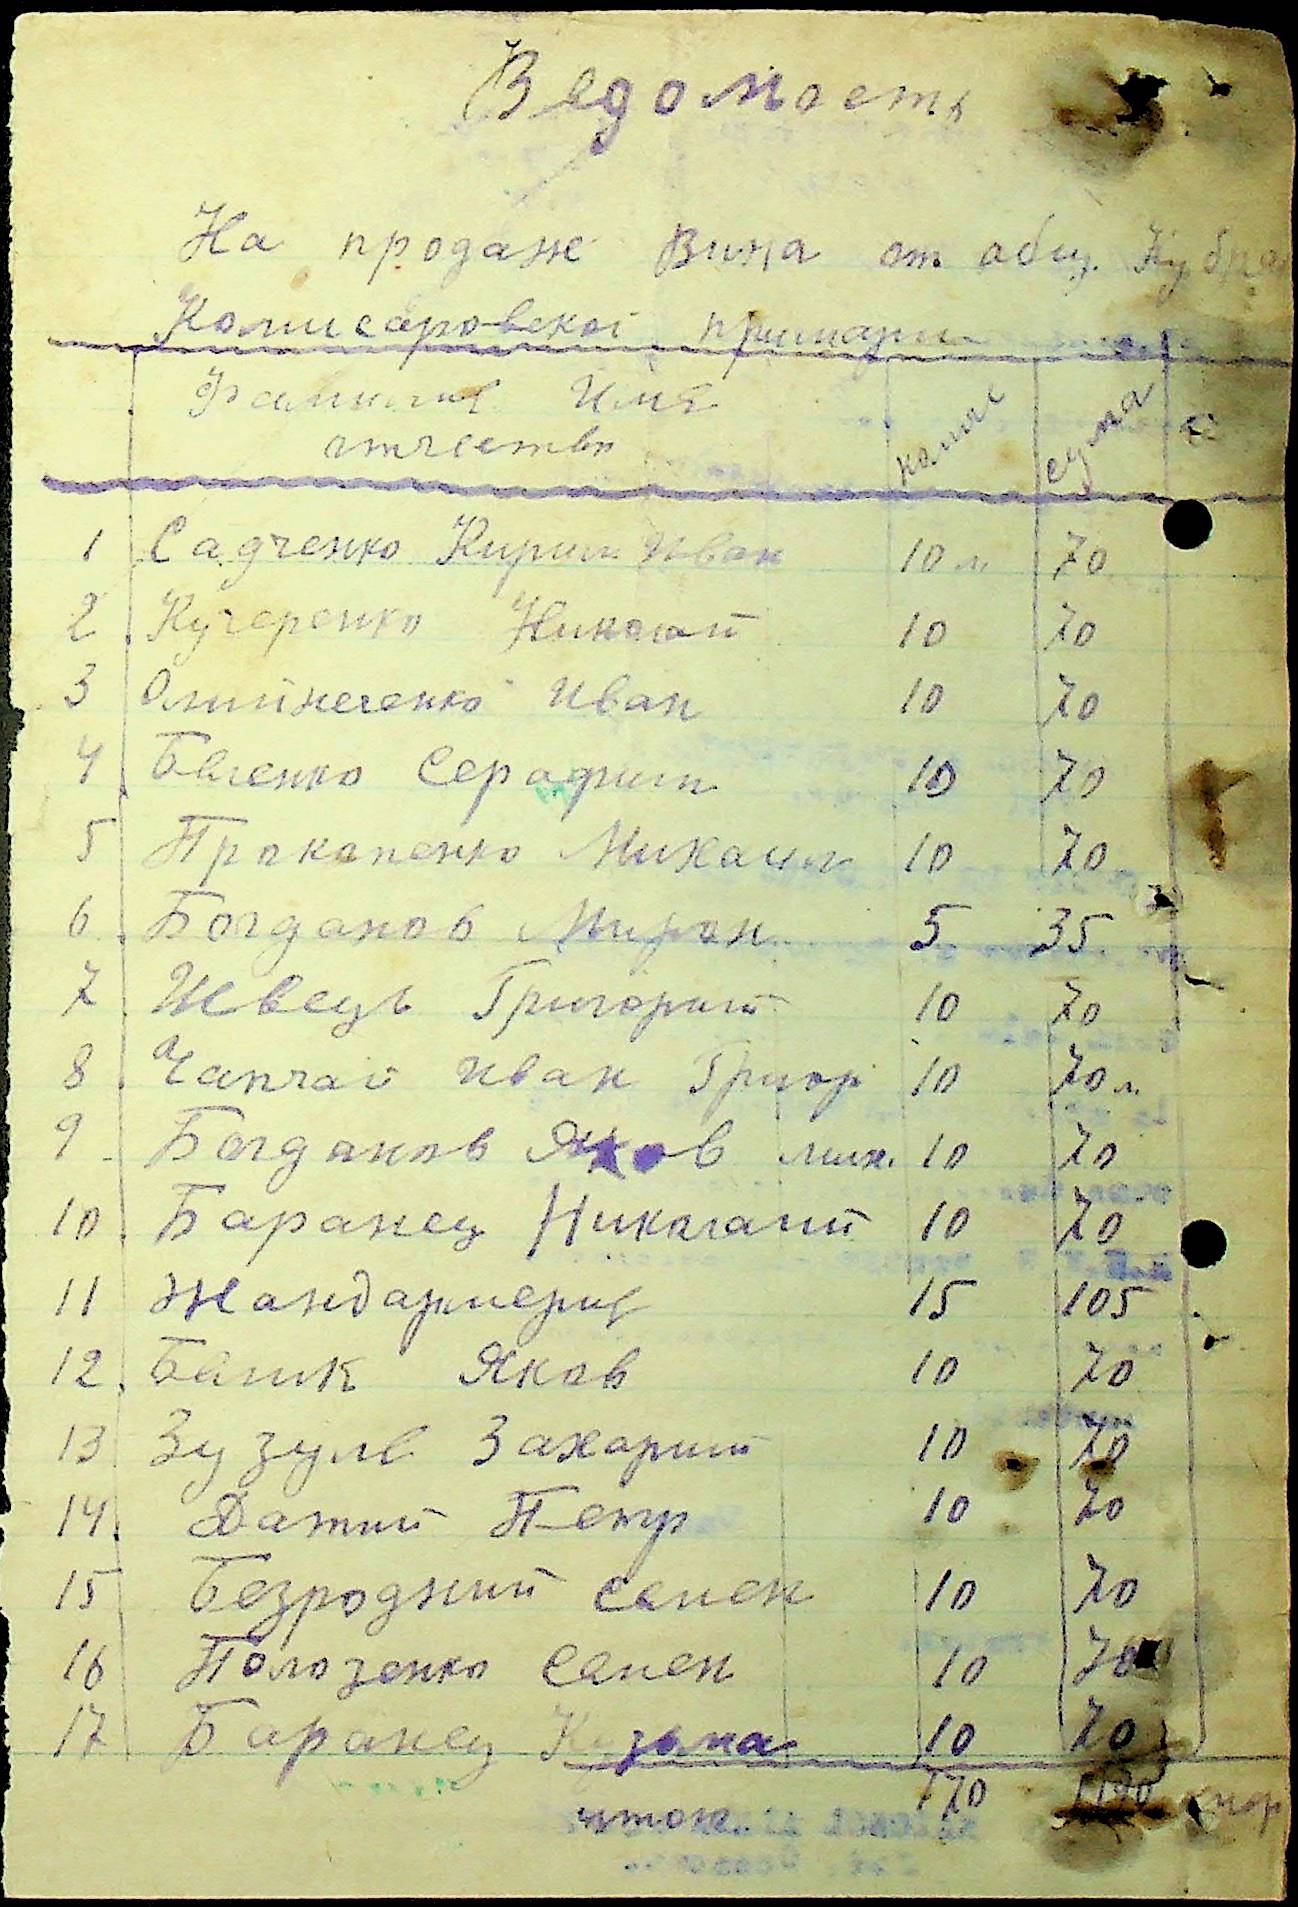 Ведомость
На продаже Вина от общ. Кубра
Комисаровской примари
Фамилия Имя колис сума
отчество
1 Садченко Кирил Иван 10 л. 70
2 Кучеренко Николай 10 70
3 Олийниченко Иван 10 70
4 Серафим 10 70
5 Прокопенко Михаил 10 70
6 Богданов Мирон 5 35
7 Швець Григорий 10 70
8 Чапчай Иван Григор 10 70 л.
9 Богданов Яков мих. 10 70
10 Баранец Николаий 10 70
11 Жандармерия 15 105
12 Яков 10 70
13 Зузуля Захарий 10 70
14 Датий Петр 10 70
15 Безродний Семен 10 70
16 Полозенко Семен 10 70
17 Баранец Кузьма 10 70
итог 170 1190